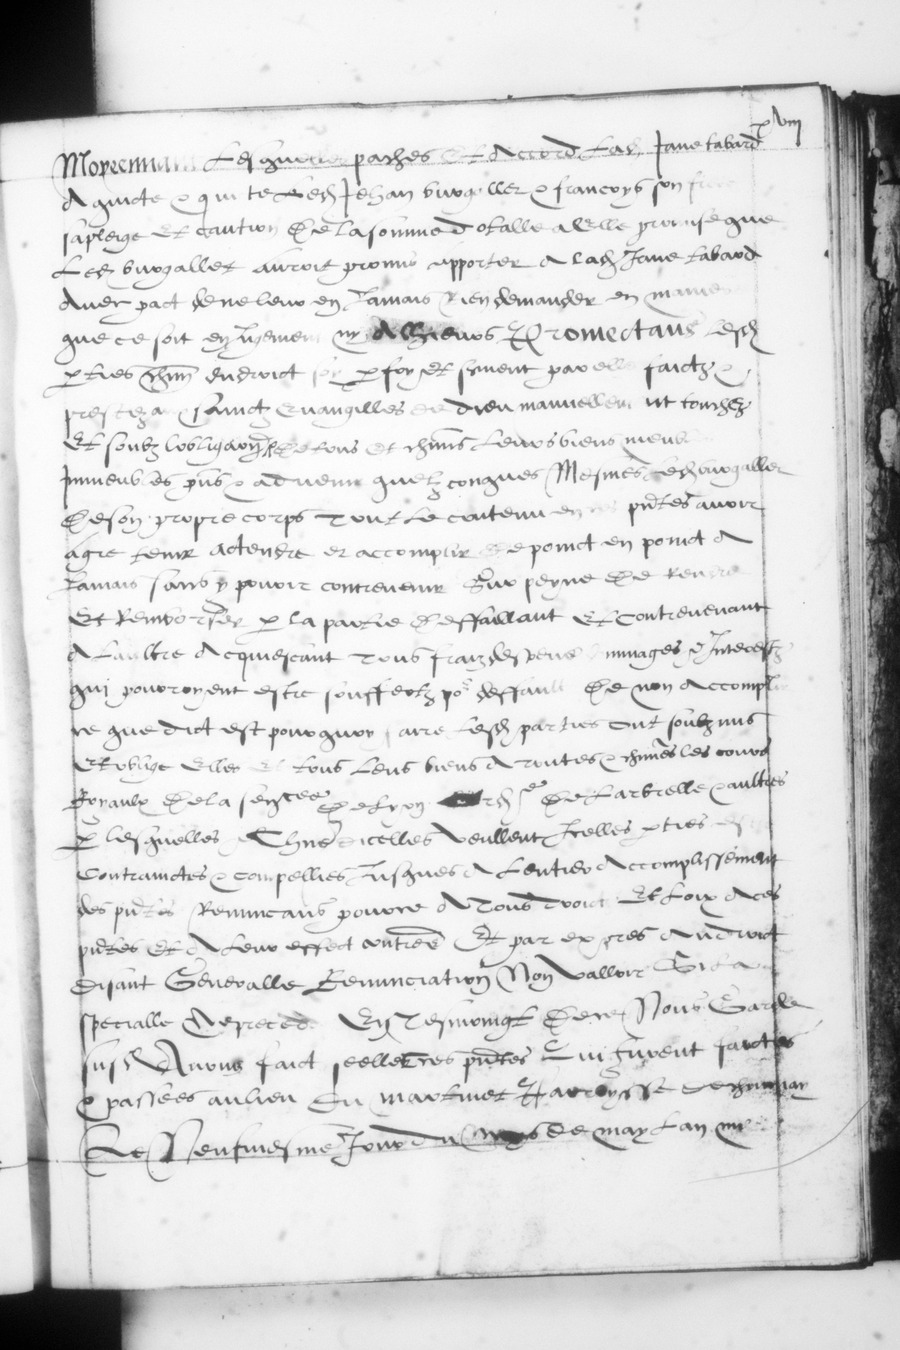 xviii
Moyennant Lesquelles paches Et Accord Lad. Jane tabard
A quicte & quite Led. Jehan burgallet & francoys son frere
sa pleige Et caution De la somme dotalle a elle promise que
Led. burgallet auroit promis apporter A lad. Jane tabard
Avec pact de ne leur en Jamais Rien demander en maniere
que ce soit en Jugement ny Allieurs Promectans lesd.
parties chun endroict soy par foy et serment par elles faictz &
prestez aux sainctz Evangilles de dieu manuellement touchez
Et soubz lobligaon De tous et chuns Leurs biens meubles
Immeubles pns & advenir quelzconques Mesmes Led. burgallet
De son propre corps Tout Le contenu en ces pntes avoir
agre tenir actendre et accomplir De poinct en poinct A
Jamais sans y pouvoir contrevenir Sur peyne De Rendre
Et Rembourser par la partie Deffaillant Et Contrevenant
A Laultre Acquiescant Tous fraiz despens dommages & Interestz
qui pourroyent estre souffertz por deffault De non Accomplir
ce que dict est pourquoy faire Lesd. parties ont soubzmis
Et oblige Elles Et tous Leurs biens A toutes & chunes les cours
Royaulx De la sencee De Lyon De Larbrelle & aultres
par lesquelles & Chune dicelles Veullent Icelles parties estre
Contrainctes & Compellies Jusques A Lentier Accomplissement
des pntes Renuncans pource A Tous Droict Et Loix A ces
pntes Et A Leur effect contres Et par expres Au Droict
Disant Generalle Renunciation Non Valloir Si la
specialle ne precede En Tesmoingt De ce Nous Garde
susd. Avons faict seeller ces pntes Qui furent faictes
& passees au lieu du martinet Parroysse de
Le Neufviesme Jour du Moys de may Lan mil